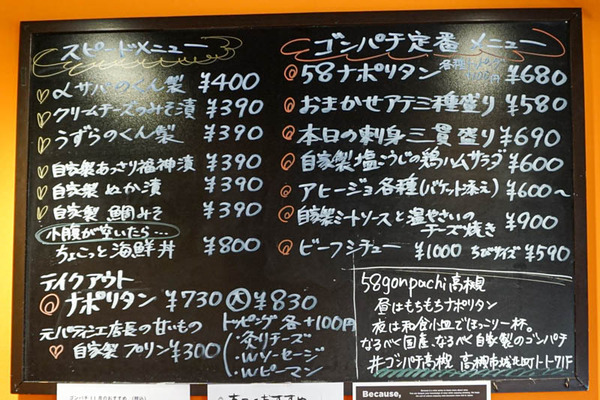 スピードメニュー
サバのくん製 ¥400
クリームチーズのみそ漬 ¥390
うずらのくん製 ¥390
自家製あっさり福神漬 ¥390
自家製 ぬか漬 ¥390
自家製 鯛みそ ¥390
小腹が空いたら…
ちょこっと海鮮丼 ¥800
テイクアウト
ナポリタン ¥730 大 ¥830
元パティシエ店長の甘いもの
自家製 プリン ¥300
トッピング 各+100円
炙りチーズ
Wソーセージ
Wピーマン
ゴンパチ定番メニュー
58ナポリタン ¥680
おまかせアテ三種盛り ¥580
本日の刺身三貫盛り ¥690
自家製塩こうじの鶏ハムサラダ ¥600
アヒージョ各種(バケット添え) ¥600〜
自家製ミートソースと温やさいの
チーズ焼き ¥900
ビーフシチュー ¥1000 ちびサイズ ¥590
58gonpachi高槻
昼はもちもちナポリタン
夜は和食小皿でほっこり一杯。
なるべく国産、なるべく自家製のゴンパチ
#ゴンパチ高槻 高槻市城北町
Because,